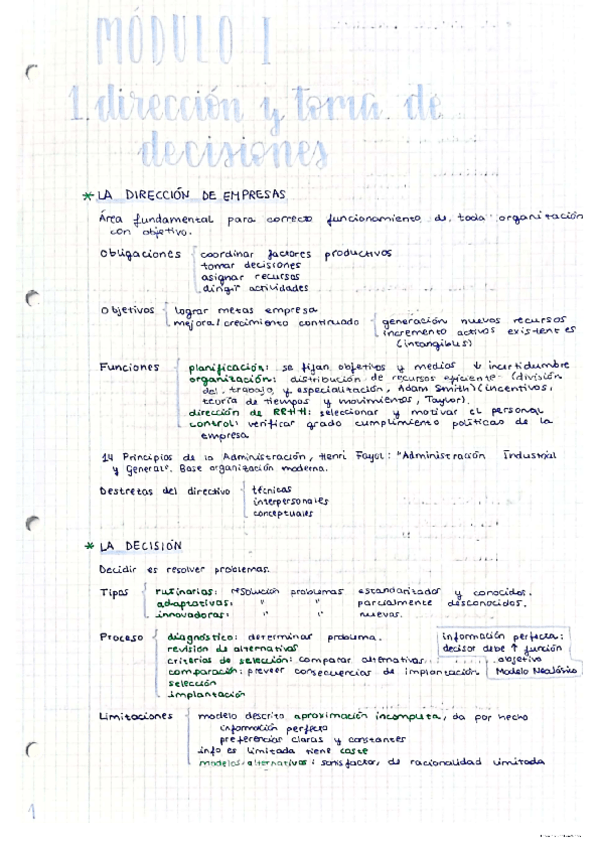 MÓDULO I
1. dirección y toma de
decisiones
* LA DIRECCIÓN DE EMPRESAS
Área fundamental para correcto funcionamiento de toda organización
con objetivo.
Obligaciones
coordinar factores productivos
tomar decisiones
asignar recursos
dirigir actividades
Objetivos
lograr metas empresa
mejora/crecimiento continuado
generación nuevos recursos
incremento activos existentes
(intangibles)
Funciones
planificación: se fijan objetivos y medios ↓ incertidumbre
organización: distribución de recursos eficiente (división
del trabajo y especialización, Adam Smith) (incentivos,
teoría de tiempos y movimientos, Taylor).
dirección de RRHH: seleccionar y motivar el personal
control: verificar grado cumplimiento políticas de la
empresa
14 Principios de la Administración, Henri Fayol: "Administración Industrial
y General". Base organización moderna.
Destrezas del directivo
técnicas
interpersonales
conceptuales
* LA DECISIÓN
Decidir es resolver problemas.
Tipos
rutinarias: resolución problemas estandarizados y conocidos.
adaptativas: " " parcialmente desconocidos.
innovadoras: " " nuevas.
Proceso
diagnóstico: determinar problema.
revisión de alternativas
criterios de selección: comparar alternativas
comparación: preveer consecuencias de implantación
selección
implantación
información perfecta:
decisor debe ↑ función
objetivo
Modelo Neoclásico
Limitaciones
modelo descrito aproximación incompleta, da por hecho
información perfecta
preferencias claras y constantes
info es limitada tiene coste
modelos alternativos: satisfactor, de racionalidad limitada
1